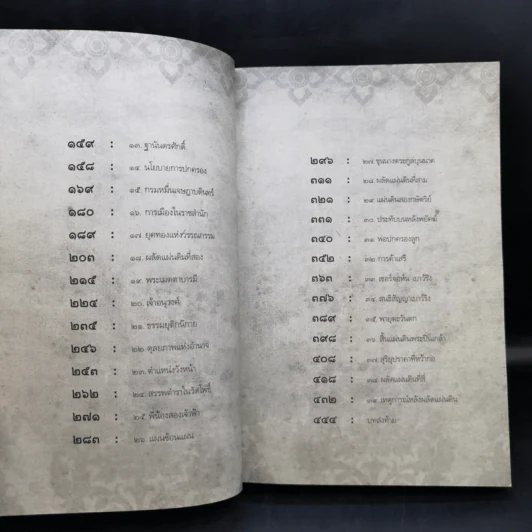 ๑๔๙ : ๑๓. ฐานันดรศักดิ์
๑๕๘ : ๑๔. นโยบายการปกครอง
๑๖๙ : ๑๕. กรมหมื่นเจษฎาบดินทร์
๑๘๐ : ๑๖. การเมืองในราชสำนัก
๑๘๙ : ๑๗. ยุคทองแห่งวรรณกรรม
๒๐๓ : ๑๘. ผลัดแผ่นดินที่สอง
๒๑๕ : ๑๙. พระเมตตาบารมี
๒๒๔ : ๒๐. เจ้าอนุวงศ์
๒๓๕ : ๒๑. ธรรมยุติกนิกาย
๒๔๖ : ๒๒. ดุลยภาพแห่งอำนาจ
๒๕๓ : ๒๓. ตำแหน่งวังหน้า
๒๖๒ : ๒๔. สรรพตำราในวัดโพธิ์
๒๗๑ : ๒๕. พี่น้องสองเจ้าฟ้า
๒๘๓ : ๒๖. แผนซ้อนแผน
๒๙๖ : ๒๗. ขุนนางตระกูลบุนนาค
๓๑๑ : ๒๘. ผลัดแผ่นดินที่สาม
๓๒๑ : ๒๙. แผ่นดินสองกษัตริย์
๓๓๑ : ๓๐. ประทับบนหลังพยัคฆ์
๓๔๐ : ๓๑. พ่อปกครองลูก
๓๕๒ : ๓๒. การค้าเสรี
๓๖๓ : ๓๓. เซอร์จอห์น เบาว์ริง
๓๗๖ : ๓๔. สนธิสัญญาเบาว์ริง
๓๘๙ : ๓๕. พายุตะวันตก
๓๙๘ : ๓๖. สิ้นแผ่นดินพระปิ่นเกล้า
๔๐๘ : ๓๗. สุริยุปราคาที่หว้ากอ
๔๑๘ : ๓๘. ผลัดแผ่นดินที่สี่
๔๓๒ : ๓๙. เหตุการณ์หลังผลัดแผ่นดิน
๔๔๔ : บทส่งท้าย